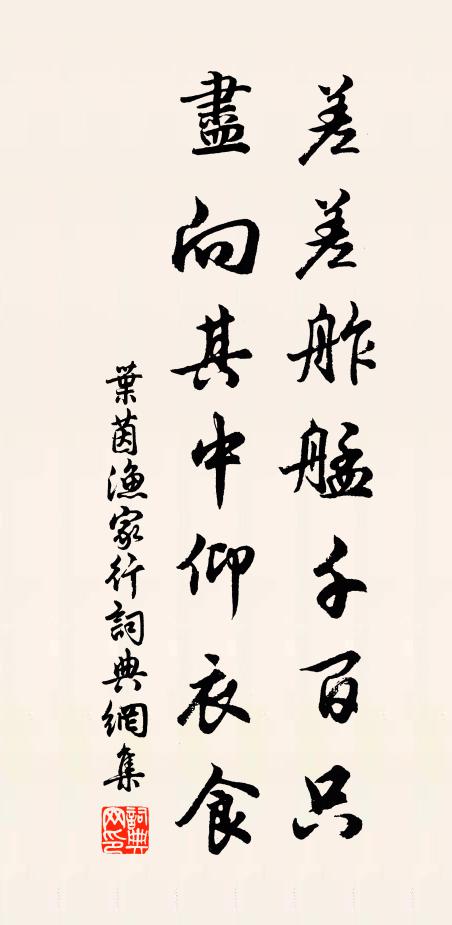 差差舴艋千百只
盡向其中仰衣食
葉茵漁家行詞典網集
詞典網印